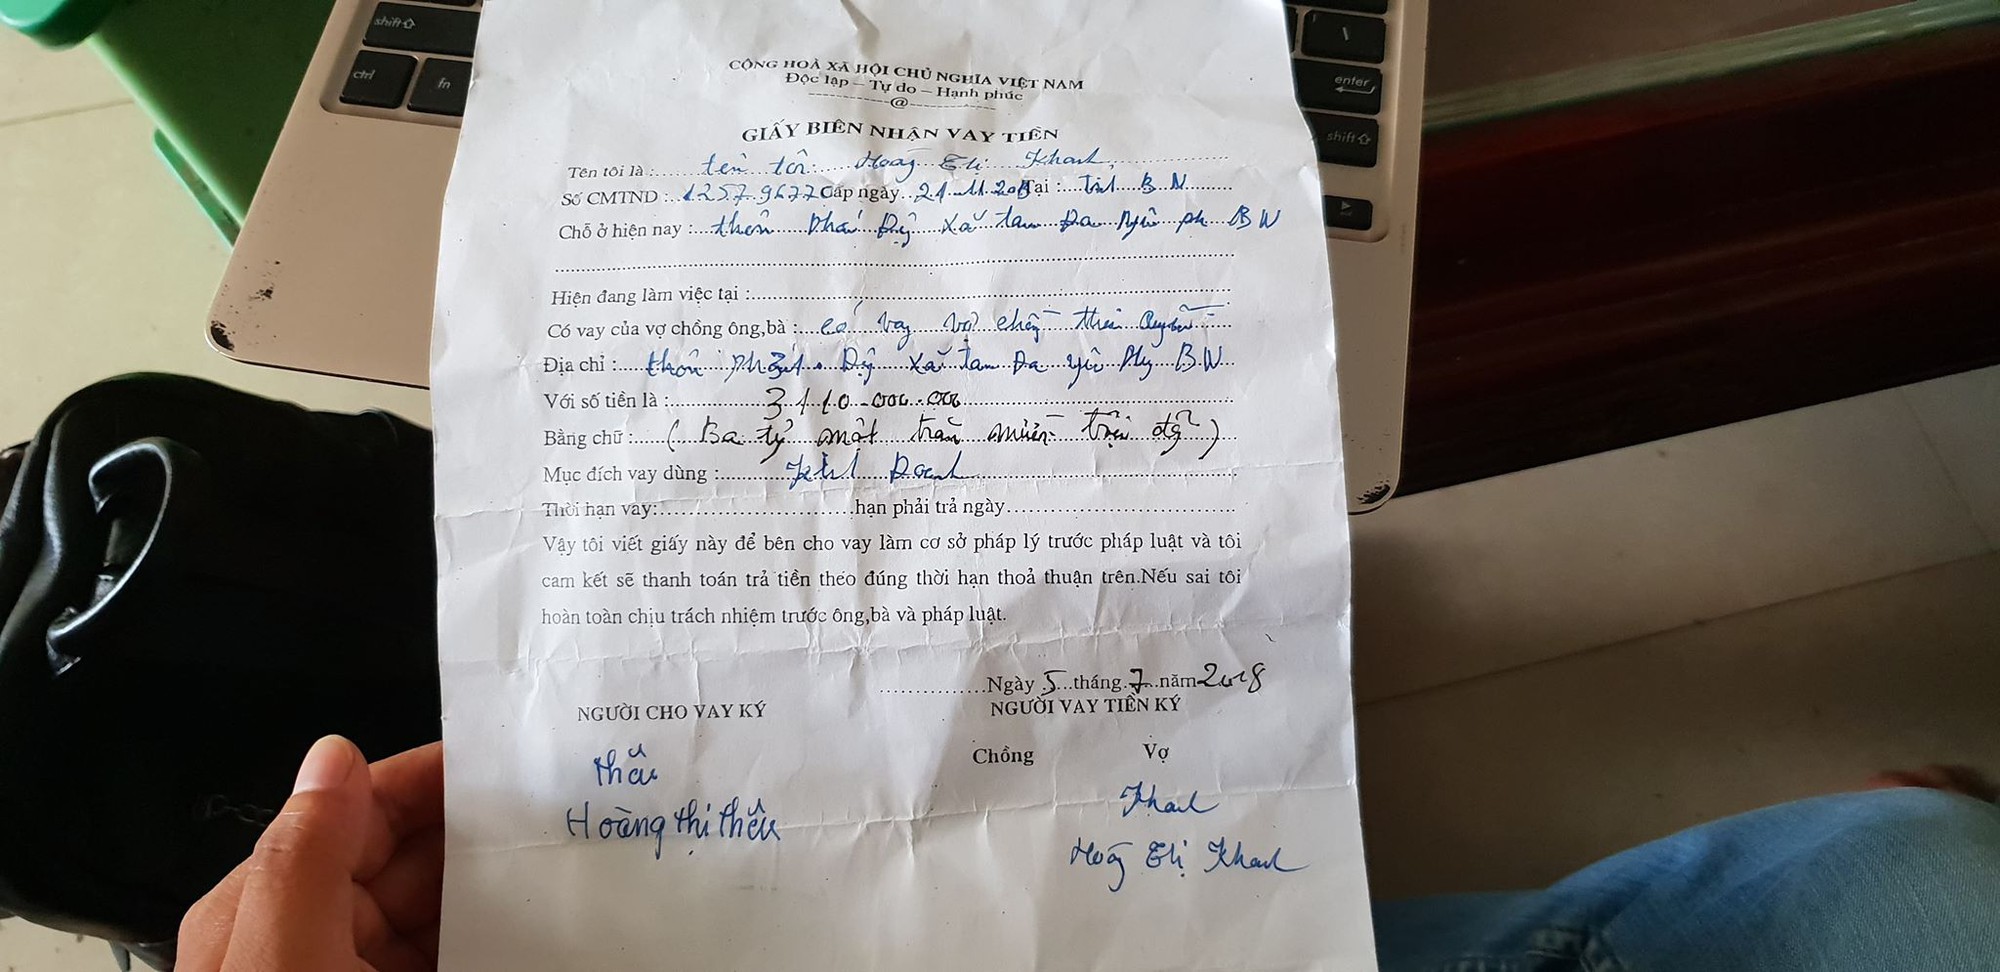 shift⇧
ctrl
fn
\
enter
shift⇧
CỘNG HOÀ XÃ HỘI CHỦ NGHĨA VIỆT NAM
Độc lập – Tự do – Hạnh phúc
------------@------------
GIẤY BIÊN NHẬN VAY TIỀN
Tên tôi là : tên tôi Khanh
Số CMTND : Cấp ngày Tại : Tỉnh BN
Chỗ ở hiện nay : thôn Đậu xã tam Đa BN
Hiện đang làm việc tại :
Có vay của vợ chồng ông,bà : có vay vợ chồng
Địa chỉ : thôn Đậu xã tam Đa yên BN
Với số tiền là : 3110.000.000
Bằng chữ : (Ba tỷ một trăm mười triệu đồng)
Mục đích vay dùng : Doanh
Thời hạn vay: hạn phải trả ngày
Vậy tôi viết giấy này để bên cho vay làm cơ sở pháp lý trước pháp luật và tôi
cam kết sẽ thanh toán trả tiền theo đúng thời hạn thoả thuận trên.Nếu sai tôi
hoàn toàn chịu trách nhiệm trước ông,bà và pháp luật.
Ngày 5 tháng 7 năm 2018
NGƯỜI CHO VAY KÝ NGƯỜI VAY TIỀN KÝ
Chồng Vợ
thêu Khanh
Hoàng thị thêu Khanh